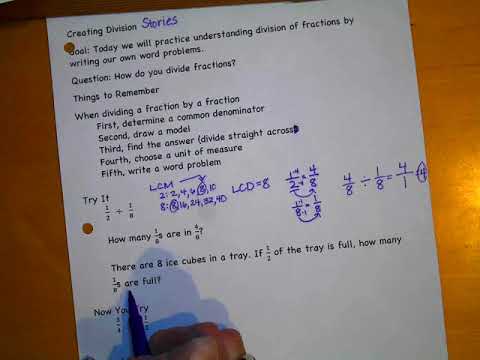 Creating Division Stories
Goal: Today we will practice understanding division of fractions by
writing our own word problems.
Question: How do you divide fractions?
Things to Remember
When dividing a fraction by a fraction
First, determine a common denominator
Second, draw a model
Third, find the answer (divide straight across)
Fourth, choose a unit of measure
Fifth, write a word problem
Try It
1/2 ÷ 1/8
LCM
2: 2, 4, 6, 8, 10
8: 8, 16, 24, 32, 40
LCD = 8
1·4/2·4 = 4/8
1·1/8·1 = 1/8
4/8 ÷ 1/8 = 4/1 = 4
How many 1/8s are in 4/8?
There are 8 ice cubes in a tray. If 1/2 of the tray is full, how many
1/8s are full?
Now You Try